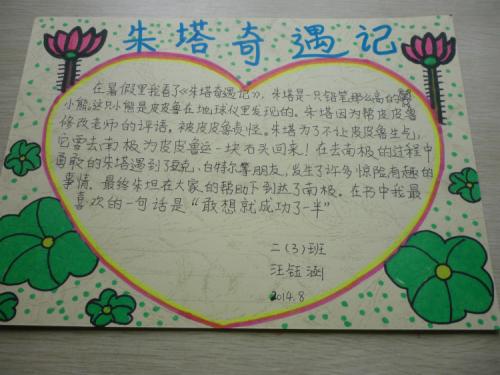 朱塔奇遇记
在暑假里我看了《朱塔奇遇记》，朱塔是一只铅笔那么高的
小熊。这只小熊是皮皮鲁在地球仪里发现的。朱塔因为帮皮皮鲁
修改老师的评语，被皮皮鲁责怪。朱塔为了不让皮皮鲁生气，
它要去南极为皮皮鲁运一块石头回来！在去南极的过程中
勇敢的朱塔遇到了克、白特尔等朋友，发生了许多惊险有趣的
事情。最终朱坦在大家的帮助下到达了南极。在书中我最
喜欢的一句话是“敢想就成功了一半”
二（3）班
汪钰涵
2014.8